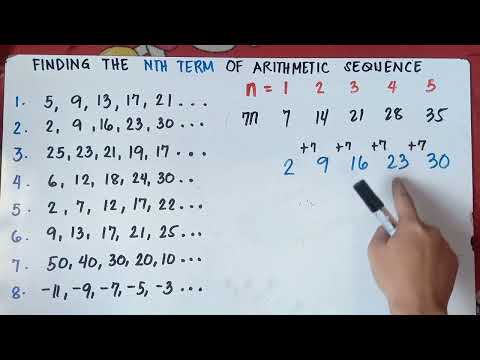 FINDING THE NTH TERM OF ARITHMETIC SEQUENCE
1. 5, 9, 13, 17, 21 ...
2. 2, 9, 16, 23, 30 ...
3. 25, 23, 21, 19, 17 ...
4. 6, 12, 18, 24, 30 ..
5. 2, 7, 12, 17, 22 ...
6. 9, 13, 17, 21, 25 ...
7. 50, 40, 30, 20, 10 ...
8. -11, -9, -7, -5, -3 ...
n = 1 2 3 4 5
7n 7 14 21 28 35
+7 +7 +7 +7
2 9 16 23 30